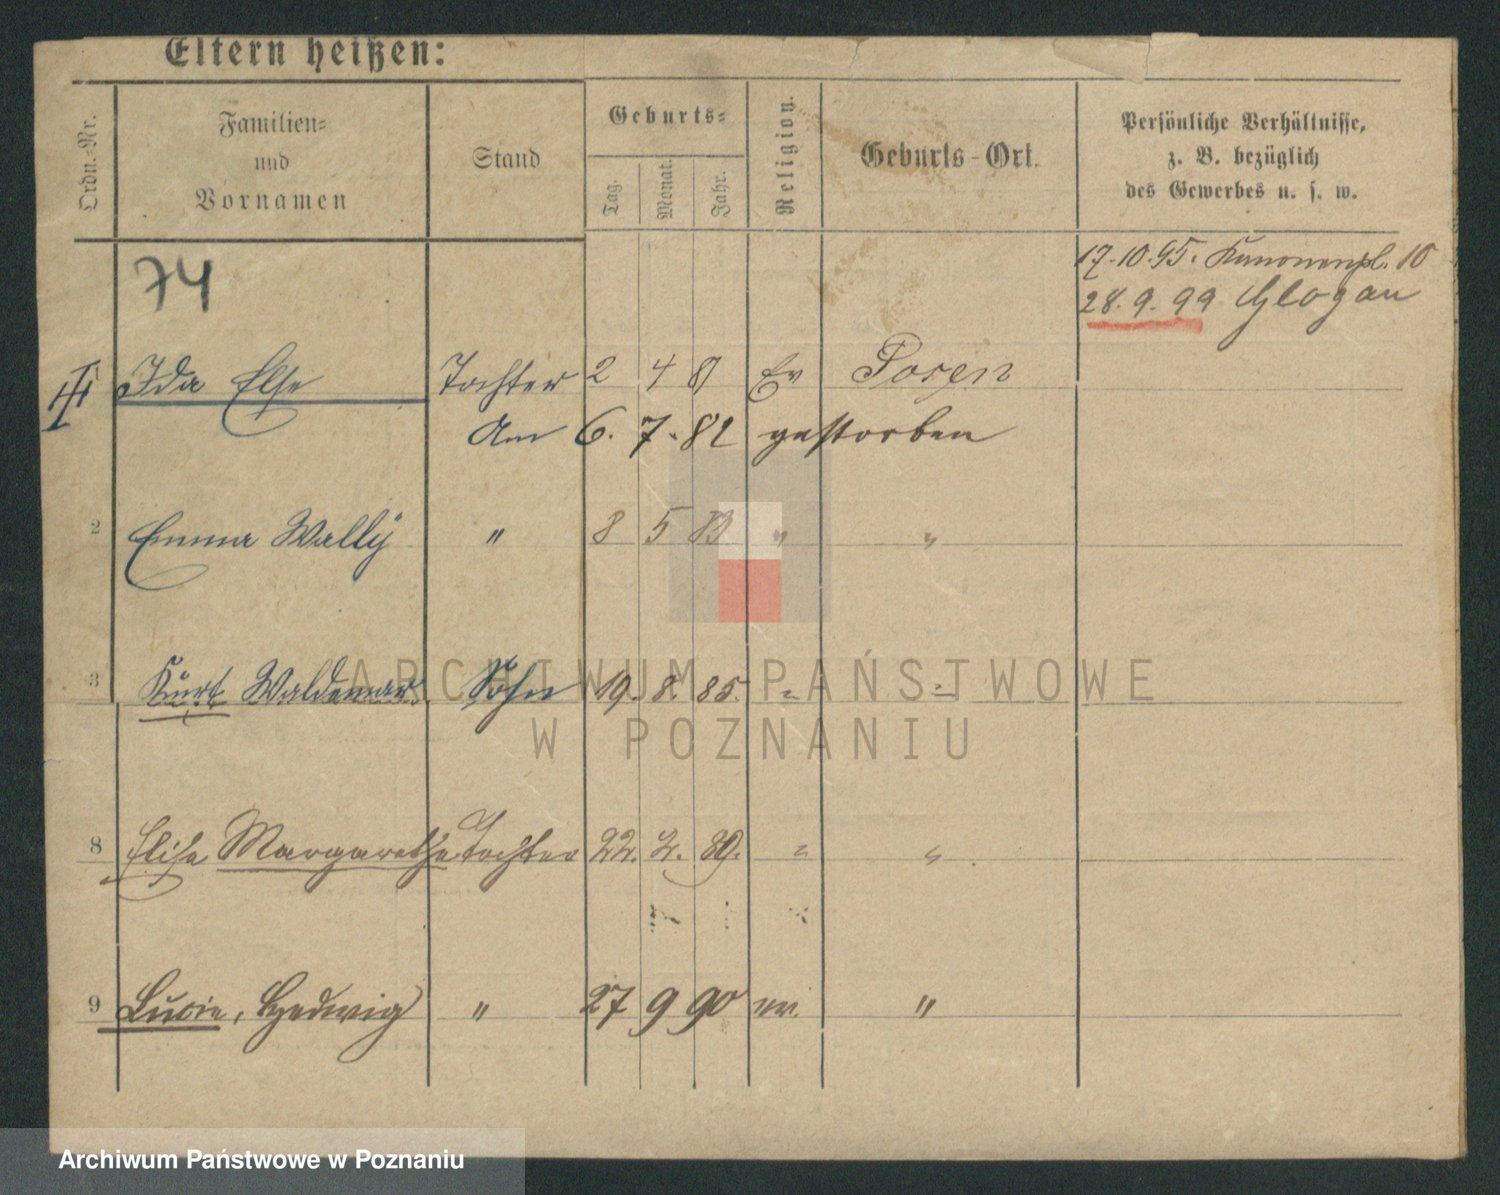 Eltern heißen:
Ordn.-Nr.
Familien=
und
Vornamen
Stand
Geburts=
Tag.
Monat.
Jahr.
Religion.
Geburts-Ort.
Persönliche Verhältnisse,
z. B. bezüglich
des Gewerbes u. s. w.
74
17.10.95. Kanonenpl. 10
28.9.99 Glogau
1 Ida Else Tochter 2 4 81 Ev Posen
Am 6. 7. 82 gestorben
2 Emma Wally " 8 5 83 " "
3 Kurt Waldemar Sohn 19. 8. 85. " "
8 Elise Margarethe Tochter 22. 2. 89. " "
9 Lucie, Hedwig " 27 9 90 ev. "
ARCHIWUM PAŃSTWOWE
W POZNANIU
Archiwum Państwowe w Poznaniu